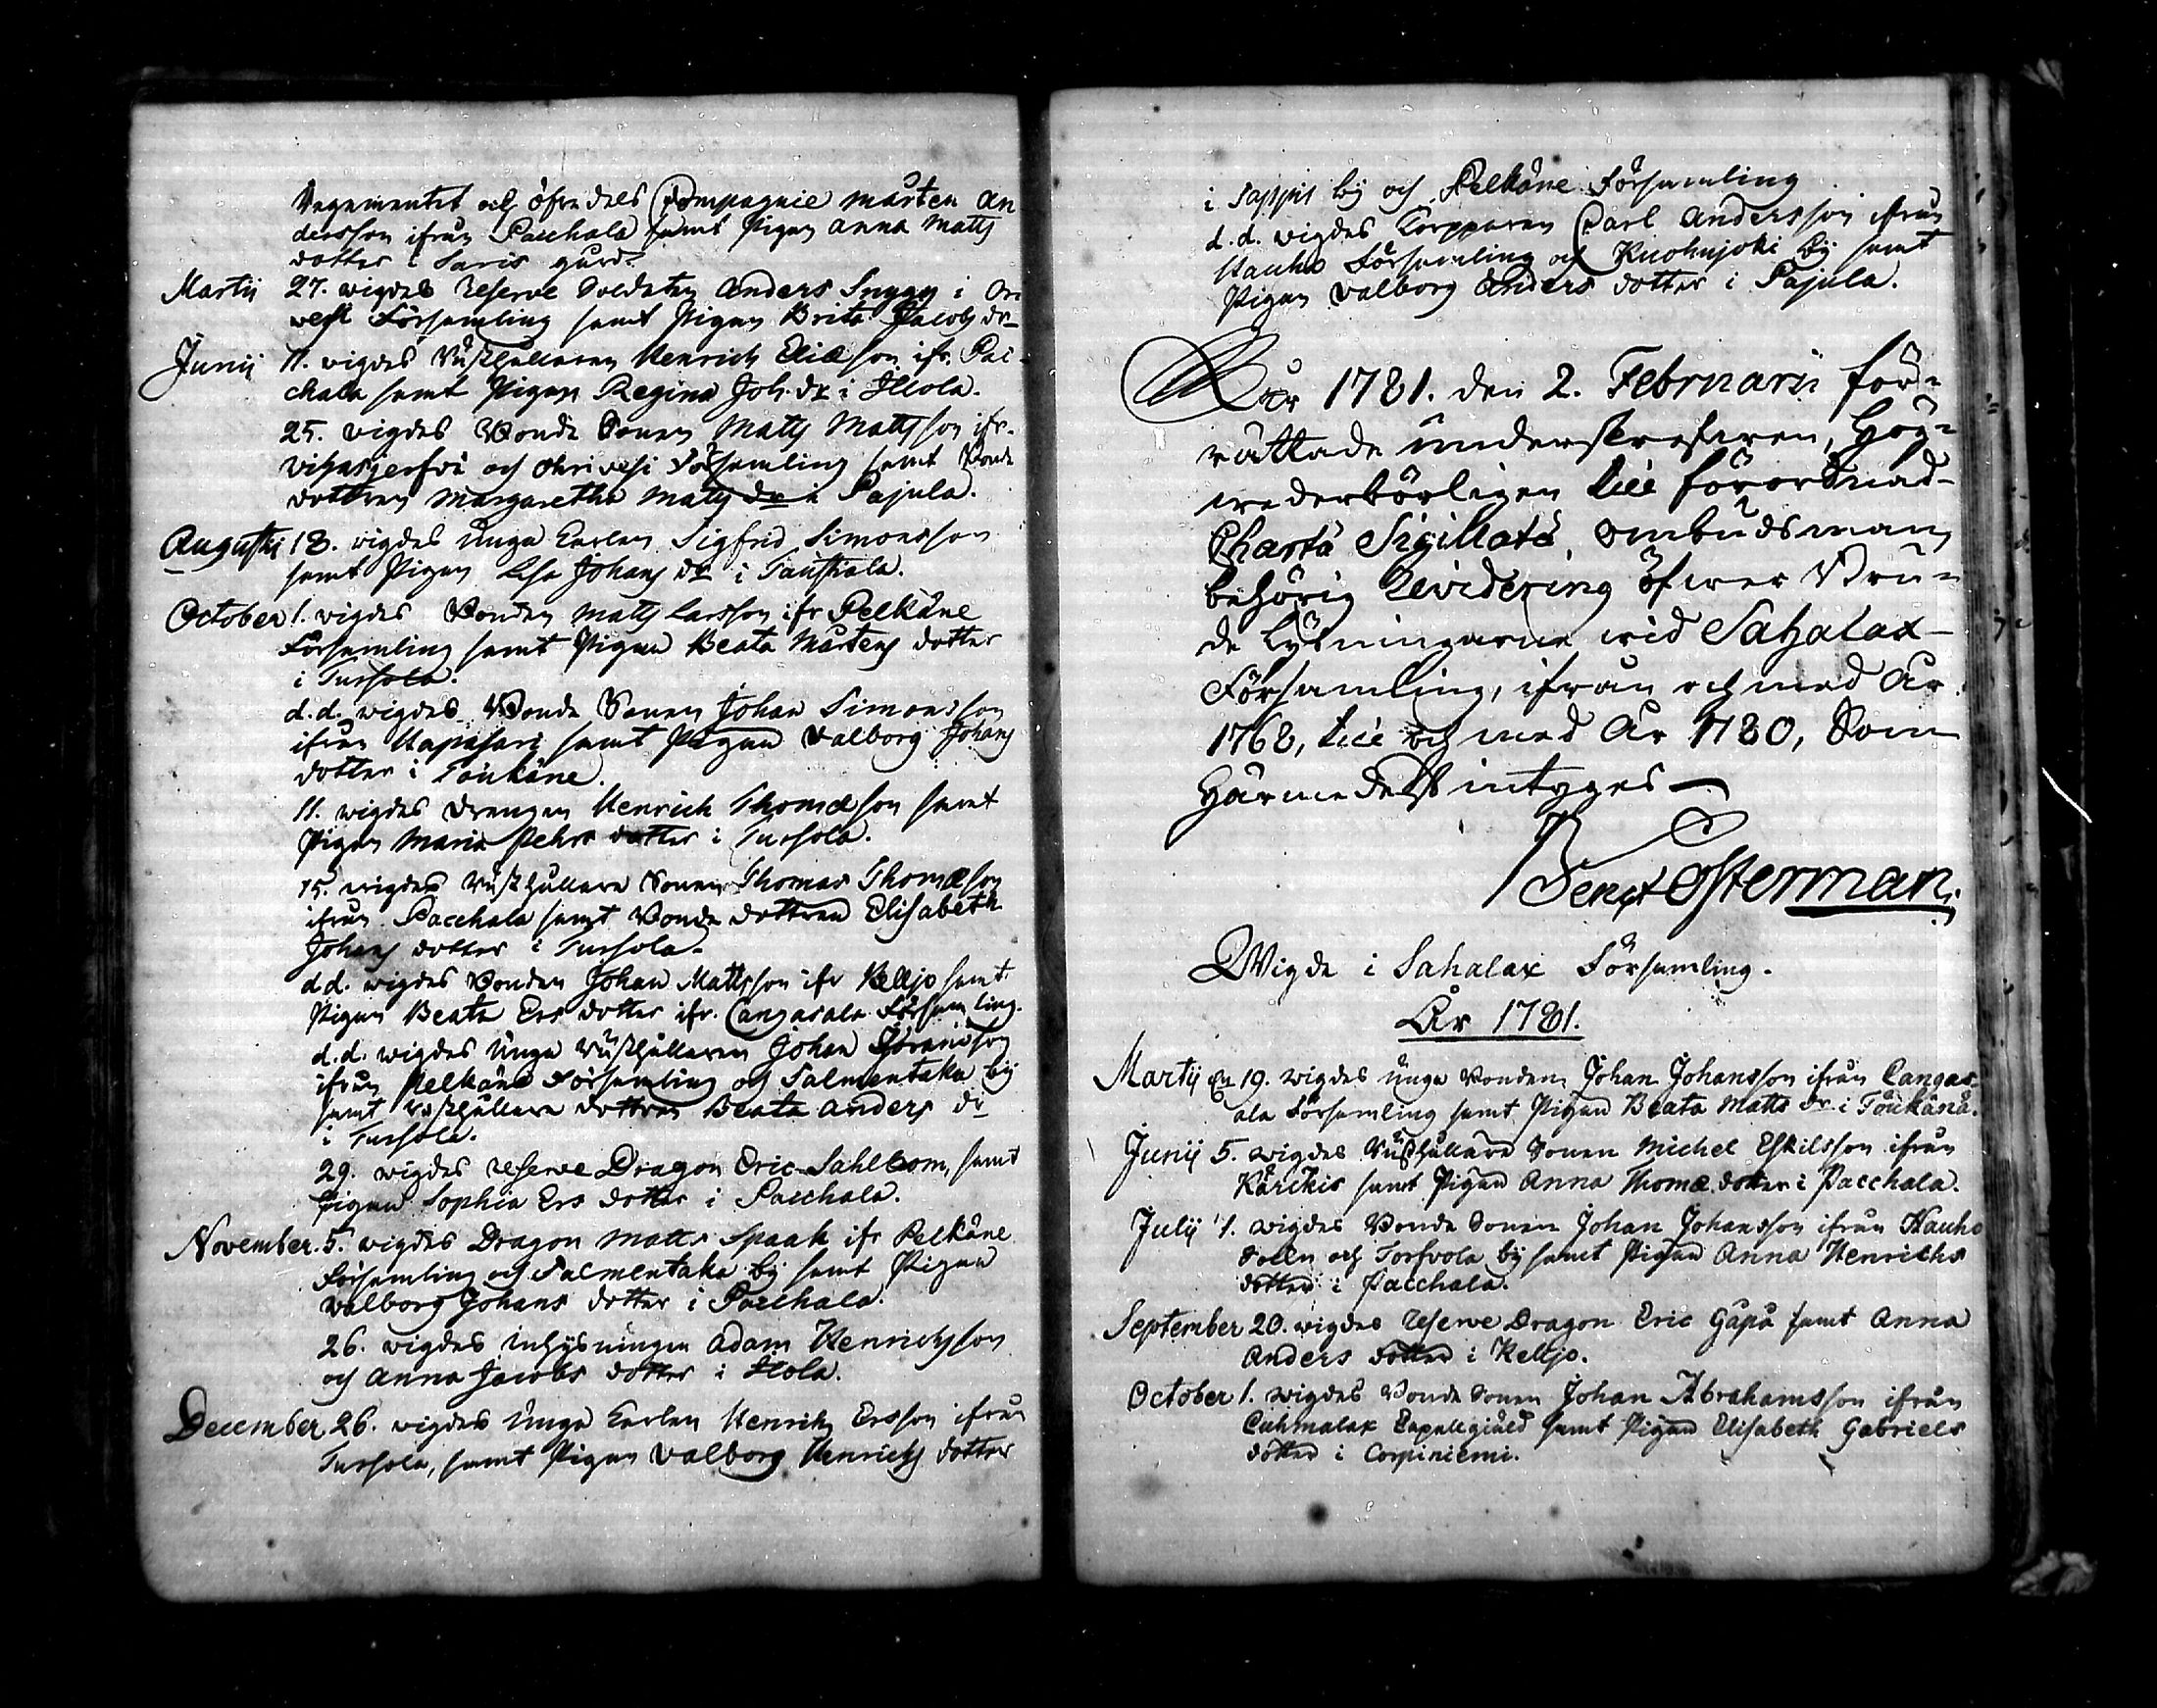 Regementet och öfredels Compagnie Mårten An
dersson ifrån Pacchala samt Pigan Anna Matts
dotter i Saris gård.
Martii 27. wigdes Reserve Soldaten Anders Snygg i Ori
wesi Församling samt Pigan Brita Jacobs dr
Junii 11. wigdes Rusthållaren Henrich Eliæson ifr. Pac-
chala samt Pigan Regina Joh. dr i Ilola.
25. wigdes Bonde Sonen Matts Mattsson ifr.
Vihasjerfvi och Orrivesi Församling samt Bonde
dottren Margaretha Matts dr i Pajula.
Augusti 18. wigdes Unga Karlen Sigfrid Simonsson
samt Pigan Lisa Johans dr i Taustiala.
October 1. wigdes Bonden Matts Larsson ifr Pelkäne
Församling samt Pigan Beata Mårtens dotter
i Tursola.
d.d. wigdes Bonde Sonen Johan Simonsson
ifrån Haapasari samt Pigan Valborg Johans
dotter i Toukäne.
11. wigdes Drengen Henrich Thomæson samt
Pigan Maria Pehrs dotter i Tursola.
15. wigdes Rusthållare Sonen Thomas Thomæson
ifrån Pacchala samt Bonde dottren Elisabeth
Johans dotter i Tursola.
d.d. wigdes Bonden Johan Mattsson ifr Keljo samt
Pigan Beata Ers dotter ifr. Cangasala Församling.
d.d. wigdes Unga Rusthållaren Johan
ifrån Pelkäne Församling och Salmentaka by
samt Rusthållare dottren Beata Anders dr
i Tursola.
29. wigdes Reserve Dragon Eric Sahlbom, samt
Pigan Sophia Ers dotter i Pacchala.
November. 5. wigdes Dragon Matts Spaak ifr Pelkäne
Församling och Salmentaka by samt Pigan
Valborg Johans dotter i Pacchala.
26. wigdes inhysningen Adam Henrichsson
och Anna Jacobs dotter i Ilola.
December. 26. wigdes Unga Karlen Henrich Ersson ifrån
Tursola, samt Pigan Valborg Henrichs dotter
i Sappis by och Pelkäne Församling
d.d. wigdes Torpparen Carl Andersson ifrån
Hauho Församling och Kuohujoki by samt
Pigan Valborg Anders dotter i Pajula.
År 1781. den 2. Februarii för=
rättade underskrefven, Hög=
wederbörligen till förordnad
Charta Sigillatæ Ombudsman,
behörig Revidering öfwer Bru=
de Lysningarne wid Sahalax
Församling, ifrån och med År
1768, till och med År 1780, Som
härmedelst intyges
Bengt Osterman.
Wigde i Sahalax Församling.
År 1781.
Martij 19. wigdes Unga Bonden Johan Johansson ifrån Cangas-
ala Församling samt Pigan Beata Matts dr i Toukänä.
Junij 5. wigdes Rusthållare Sonen Michel Eskilsson ifrån
Kärikis samt Pigan Anna Thomæ dotter i Pacchala.
Julij 1. wigdes Bonde Sonen Johan Johansson ifrån Hauho
Sokn och Torfvola by samt Pigan Anna Henrichs
dotter i Pacchala.
September 20. wigdes Reserve Dragon Eric Gåpå samt Anna
Anders dotter i Keljo.
October 1. wigdes Bonde Sonen Johan Abrahamsson ifrån
Cuhmalax Capellgiäld samt Pigan Elisabeth Gabriels
dotter i Corpiniemi.